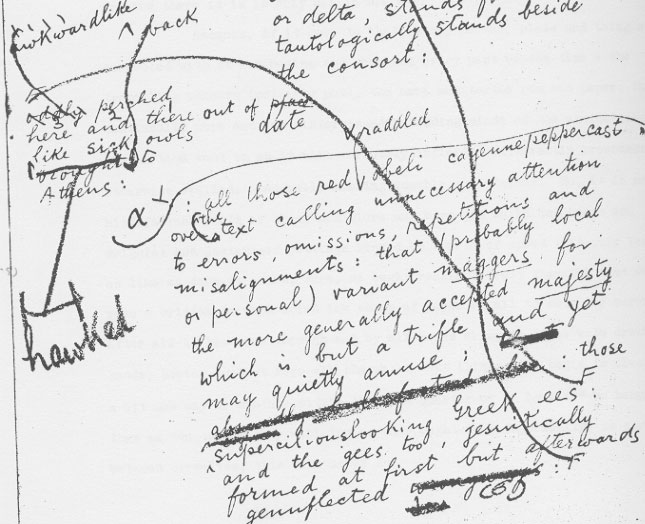 awkwardlike
back
or delta, stands
tautologically stands beside
the consort :
oddly perched
here and there out of place
date
like sick owls
brought to
Athens :
hawked
raddled
α 1
: all those red obeli cayennepeppercast
over the text calling unnecessary attention
to errors, omissions, repetitions and
misalignments : that (probably local
or personal) variant maggers for
the more generally accepted majesty
which is but a trifle and yet
may quietly amuse : : those
superciliouslooking Greek ees :
and the gees too, jesuitically
formed at first but afterwards
genuflected : F
F